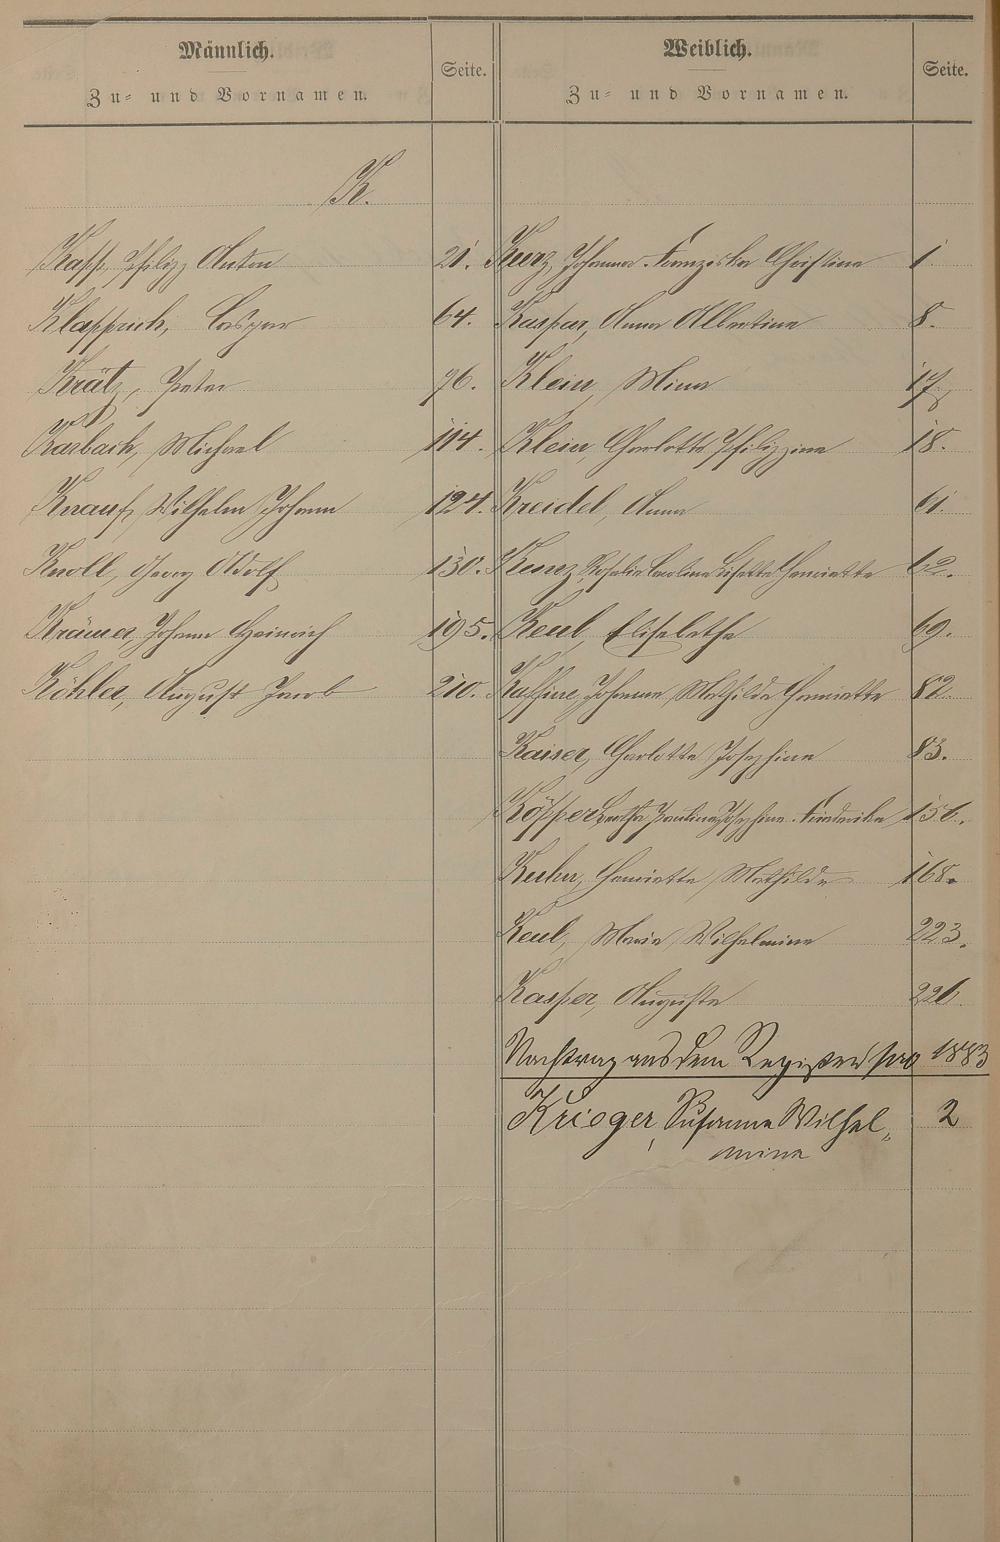 Männlich.
Zu- und Vornamen.
Seite.
K.
Kapp, Philipp Anton 21.
Klapprich, Caspar 64.
Krätz, Peter 76.
Karbach, Michael 114.
Knauf, Wilhelm Johann 124.
Knoll, Georg Adolf 130.
Krämer, Johann Heinrich 195.
Köhler, August Jacob 210.
Weiblich.
Zu- und Vornamen.
Seite.
Kurz, Johanna Franziska Christina 1.
Kaspar, Anna Albertine 8.
Klein, Mina 17
Klein, Charlotte Philippine 18.
Kreidel, Anna 61.
Kunz, Rosalie Caroline Lisette Henriette 62.
Keul, Elisabetha 69.
Johanna Mathilde Henriette 82.
Kaiser, Charlotte Josephine 83.
Bertha Pauline Josephine Friederike 156.
Kuhn, Henriette Mathilde 168.
Keul, Maria Wilhelmine 223.
Kasper, Auguste 226.
Nachtrag aus dem Register pro 1883
Krieger, Susanna Wilhel„ 2
mina